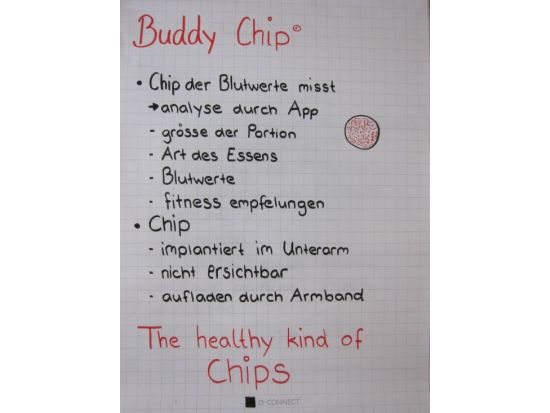 Buddy Chip©
• Chip der Blutwerte misst
→ analyse durch App
- grösse der Portion
- Art des Essens
- Blutwerte
- fitness empfelungen
• Chip
- implantiert im Unterarm
- nicht ersichtbar
- aufladen durch Armband
The healthy kind of
Chips
Q-CONNECT